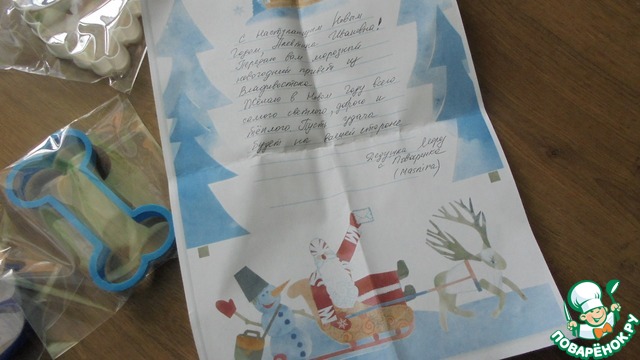 С Наступающим Новым
Годом, Ивановна!
Передаю вам морозный
новогодний привет из
Владивостока.
Желаю в Новом Году всего
самого светлого, доброго и
тёплого. Пусть удача
будет на вашей стороне.
с Поварёнка
(Maspina)
ПОВАРЁНОК.РУ